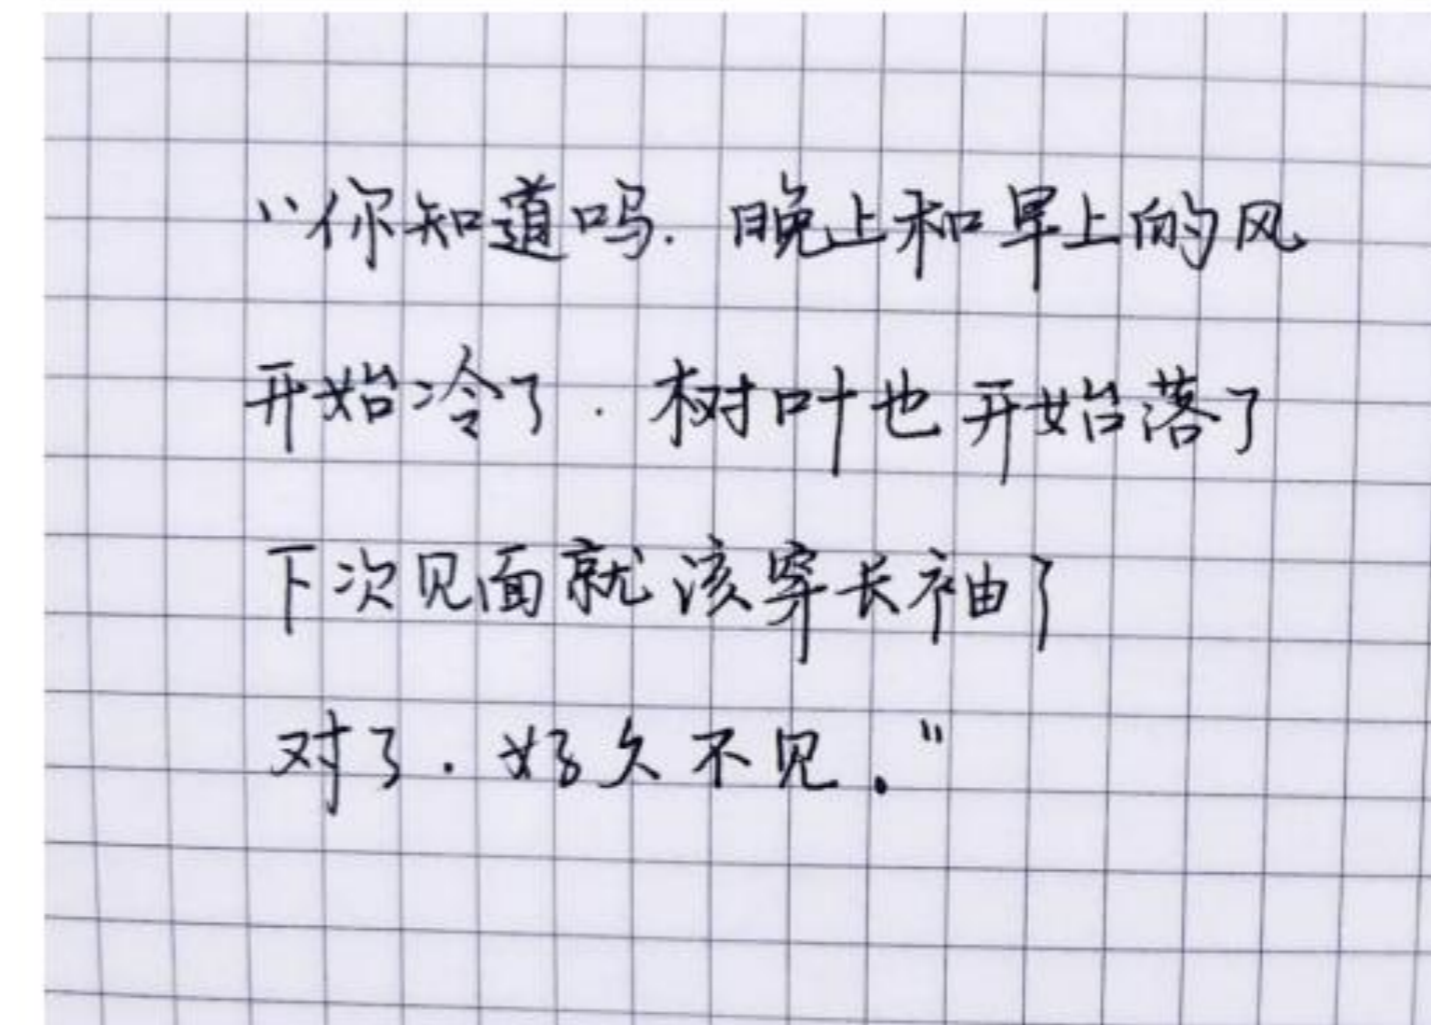 “你知道吗.晚上和早上的风
开始冷了.树叶也开始落了
下次见面就该穿长袖了
对了.好久不见.”